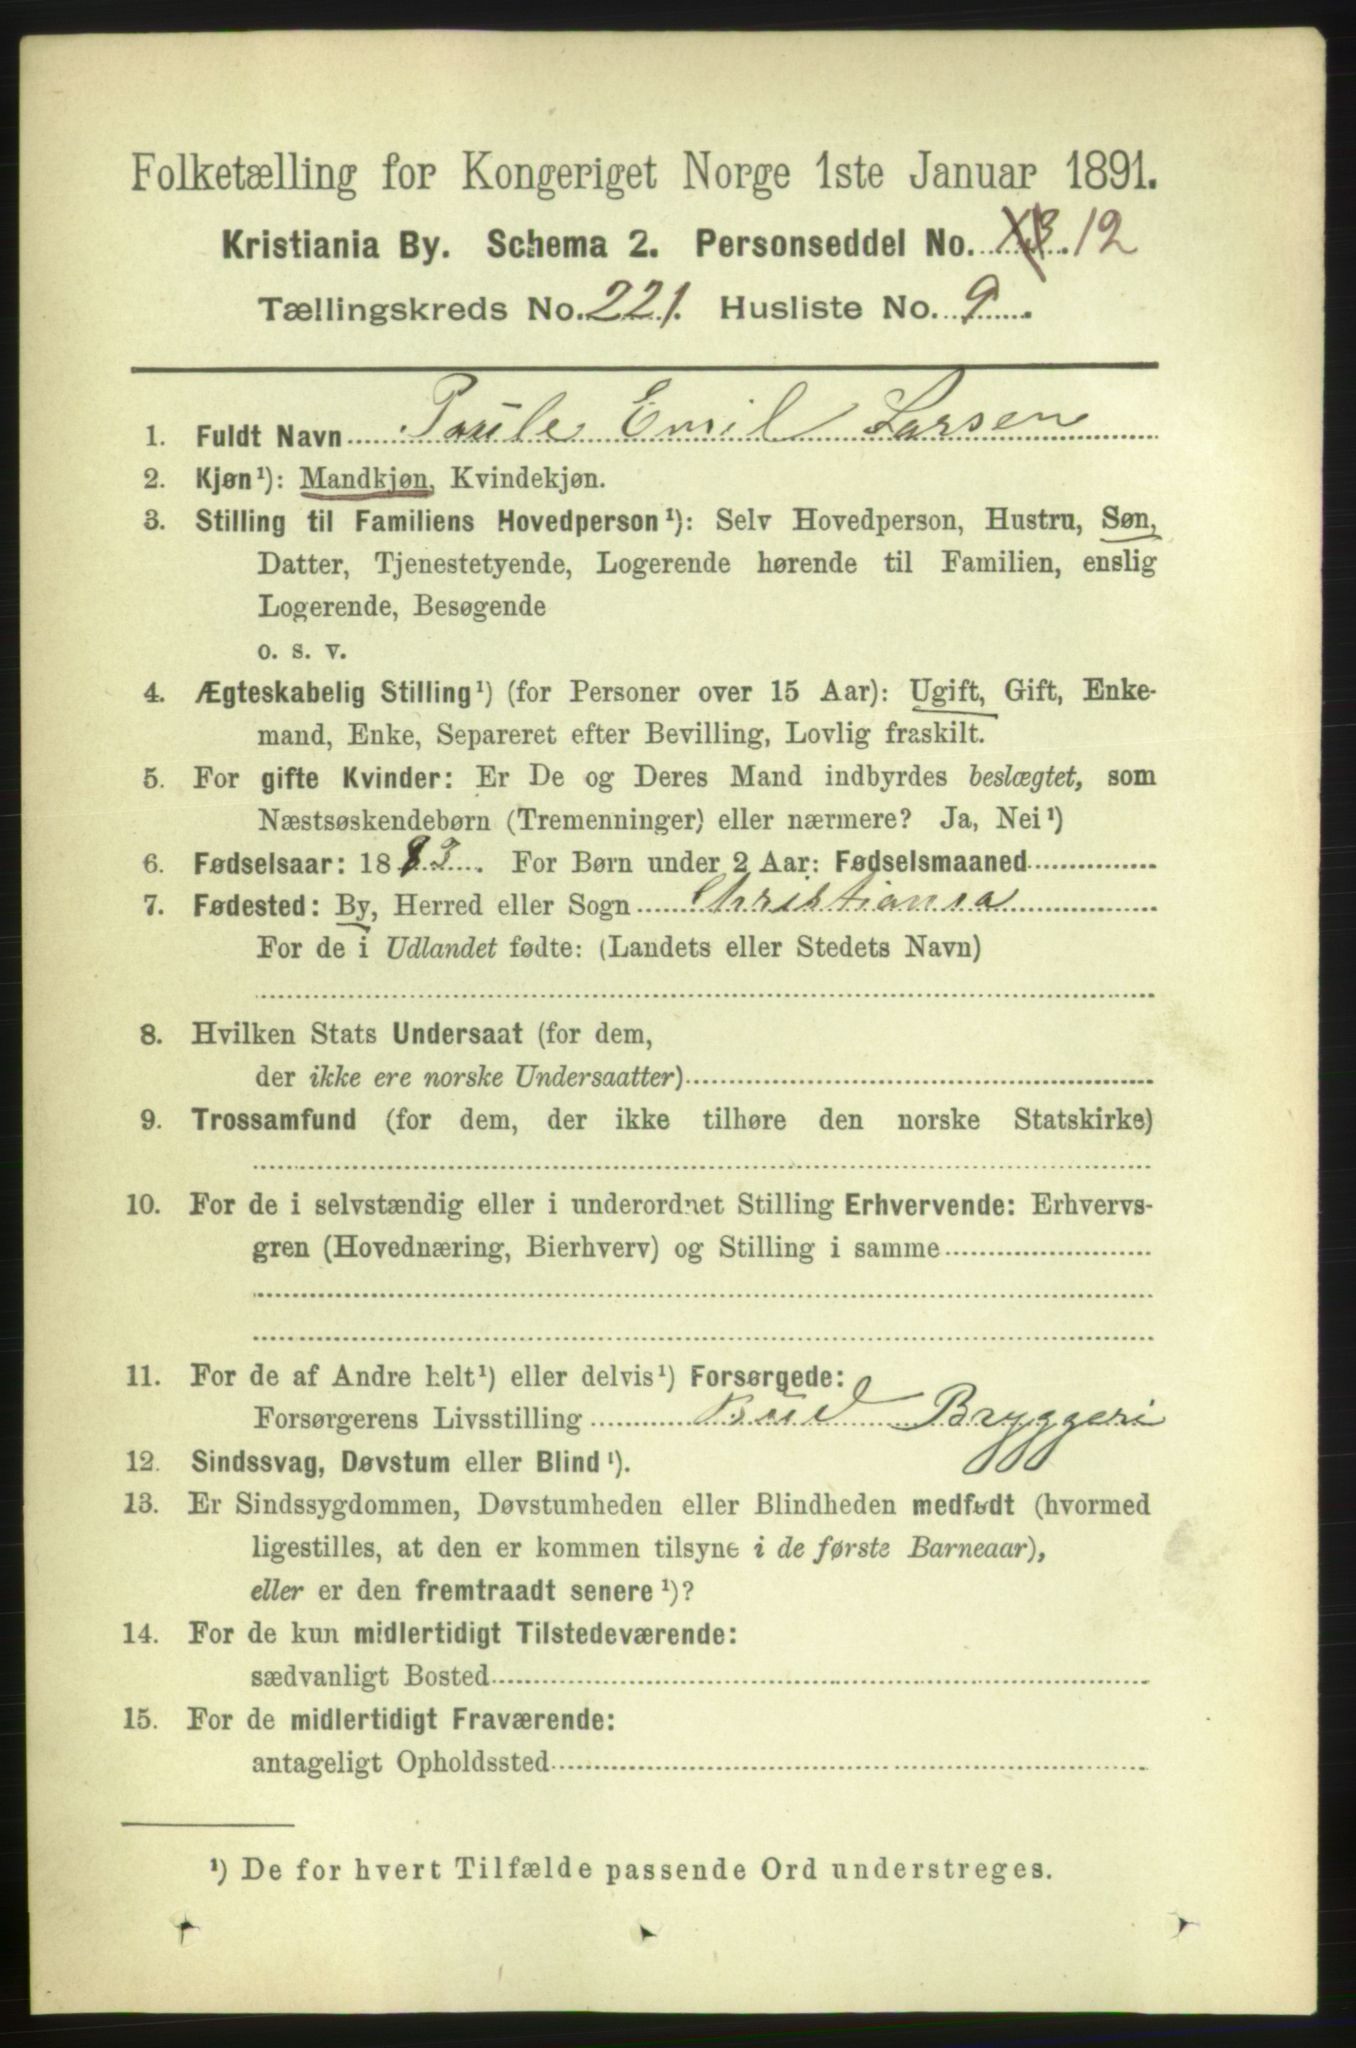 Folketælling for Kongeriget Norge 1ste Januar 1891.
Kristiania By. Schema 2. Personseddel No. 12
Tællingskreds No. 221. Husliste No. 9
1. Fuldt Navn Paule Emil Larsen
2. Kjøn¹): Mandkjøn, Kvindekjøn.
3. Stilling til Familiens Hovedperson¹): Selv Hovedperson, Hustru, Søn,
Datter, Tjenestetyende, Logerende hørende til Familien, enslig
Logerende, Besøgende
o. s. v.
4. Ægteskabelig Stilling¹) (for Personer over 15 Aar): Ugift, Gift, Enke-
mand, Enke, Separeret efter Bevilling, Lovlig fraskilt.
5. For gifte Kvinder: Er De og Deres Mand indbyrdes beslægtet, som
Næstsøskendebørn (Tremenninger) eller nærmere? Ja, Nei¹)
6. Fødselsaar: 1883. For Børn under 2 Aar: Fødselsmaaned
7. Fødested: By, Herred eller Sogn Christiania
For de i Udlandet fødte: (Landets eller Stedets Navn)
8. Hvilken Stats Undersaat (for dem,
der ikke ere norske Undersaatter)
9. Trossamfund (for dem, der ikke tilhøre den norske Statskirke)
10. For de i selvstændig eller i underordnet Stilling Erhvervende: Erhvervs-
gren (Hovednæring, Bierhverv) og Stilling i samme
11. For de af Andre helt¹) eller delvis¹) Forsørgede:
Forsørgerens Livsstilling Bud Bryggeri
12. Sindssvag, Døvstum eller Blind¹).
13. Er Sindssygdommen, Døvstumheden eller Blindheden medfødt (hvormed
ligestilles, at den er kommen tilsyne i de første Barneaar),
eller er den fremtraadt senere¹)?
14. For de kun midlertidigt Tilstedeværende:
sædvanligt Bosted
15. For de midlertidigt Fraværende:
antageligt Opholdssted
¹) De for hvert Tilfælde passende Ord understreges.